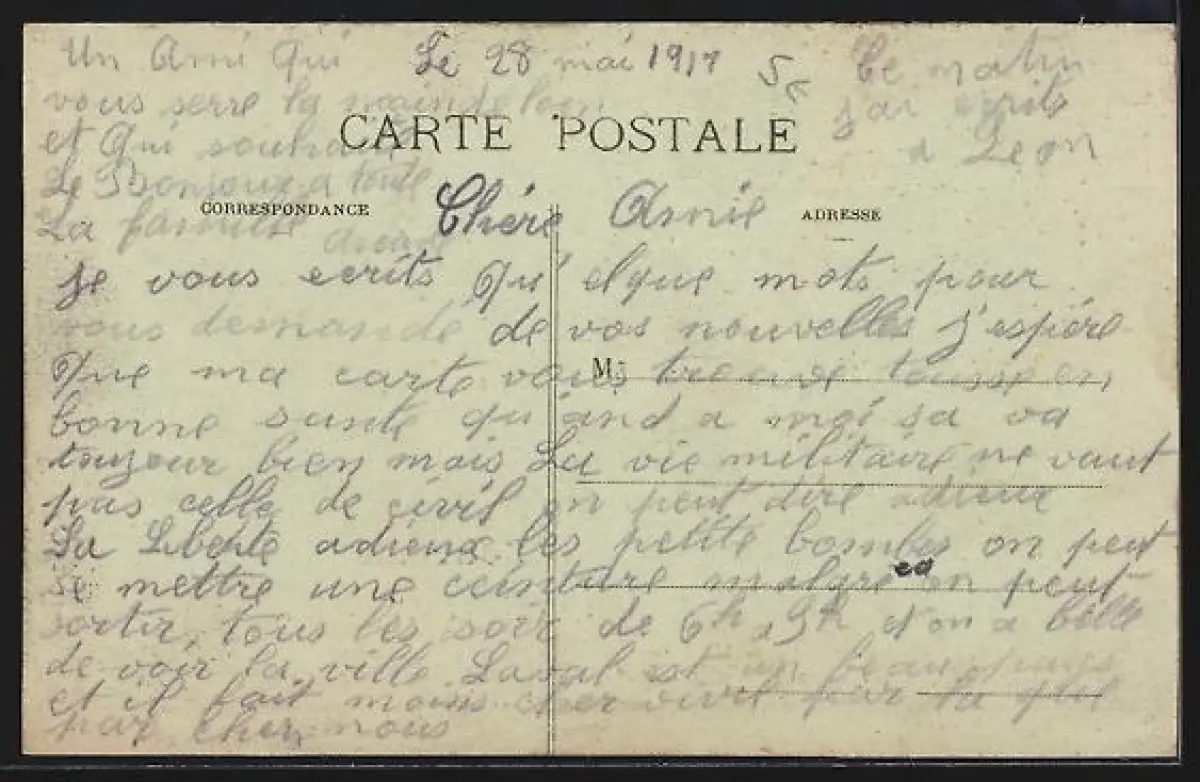 Le 28 mai 1917
CARTE POSTALE
CORRESPONDANCE
ADRESSE
M
Chére Amie
je vous ecrits Qu'elque mots pour
vous demande de vos nouvelles j'espére
Que ma carte vous trouve tousse en
bonne sante qu'and a moi sa va
toujour bien mais La vie militaire ne vaut
pas celle de civil on peut dire adieux
La Liberte adieux les petite bombes on peut
se mettre une ceinture malgre on peut
sortir, tous les soir de 6h a 9h et on a belle
de voir la ville Laval est un beau pays
et il fait moins cher vivre par la que
par chez nous
Un Ami Qui
vous serre la main de loin
et Qui souhaite
Le Bonjour a toute
La famille
Ce matin
j'ai ecrits
a Leon